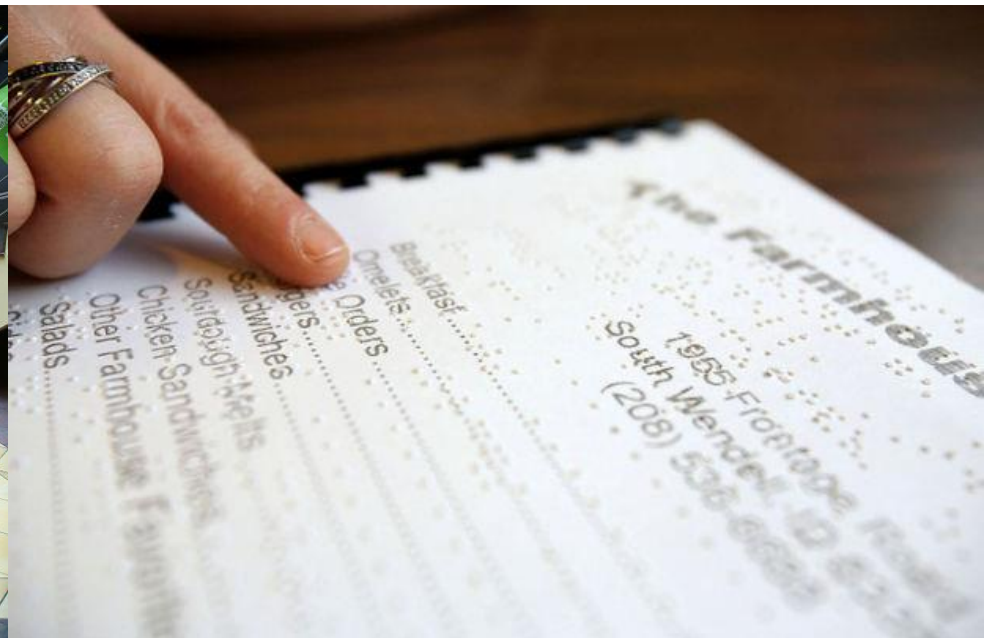 The Farmhous
1955 Frontage Road
South Wendell, ID
(208) 536-
Breakfast
Omelets
Orders
gers
Sandwiches
Sourdough Melts
Chicken Sandwiches
Other Farmhouse
Salads